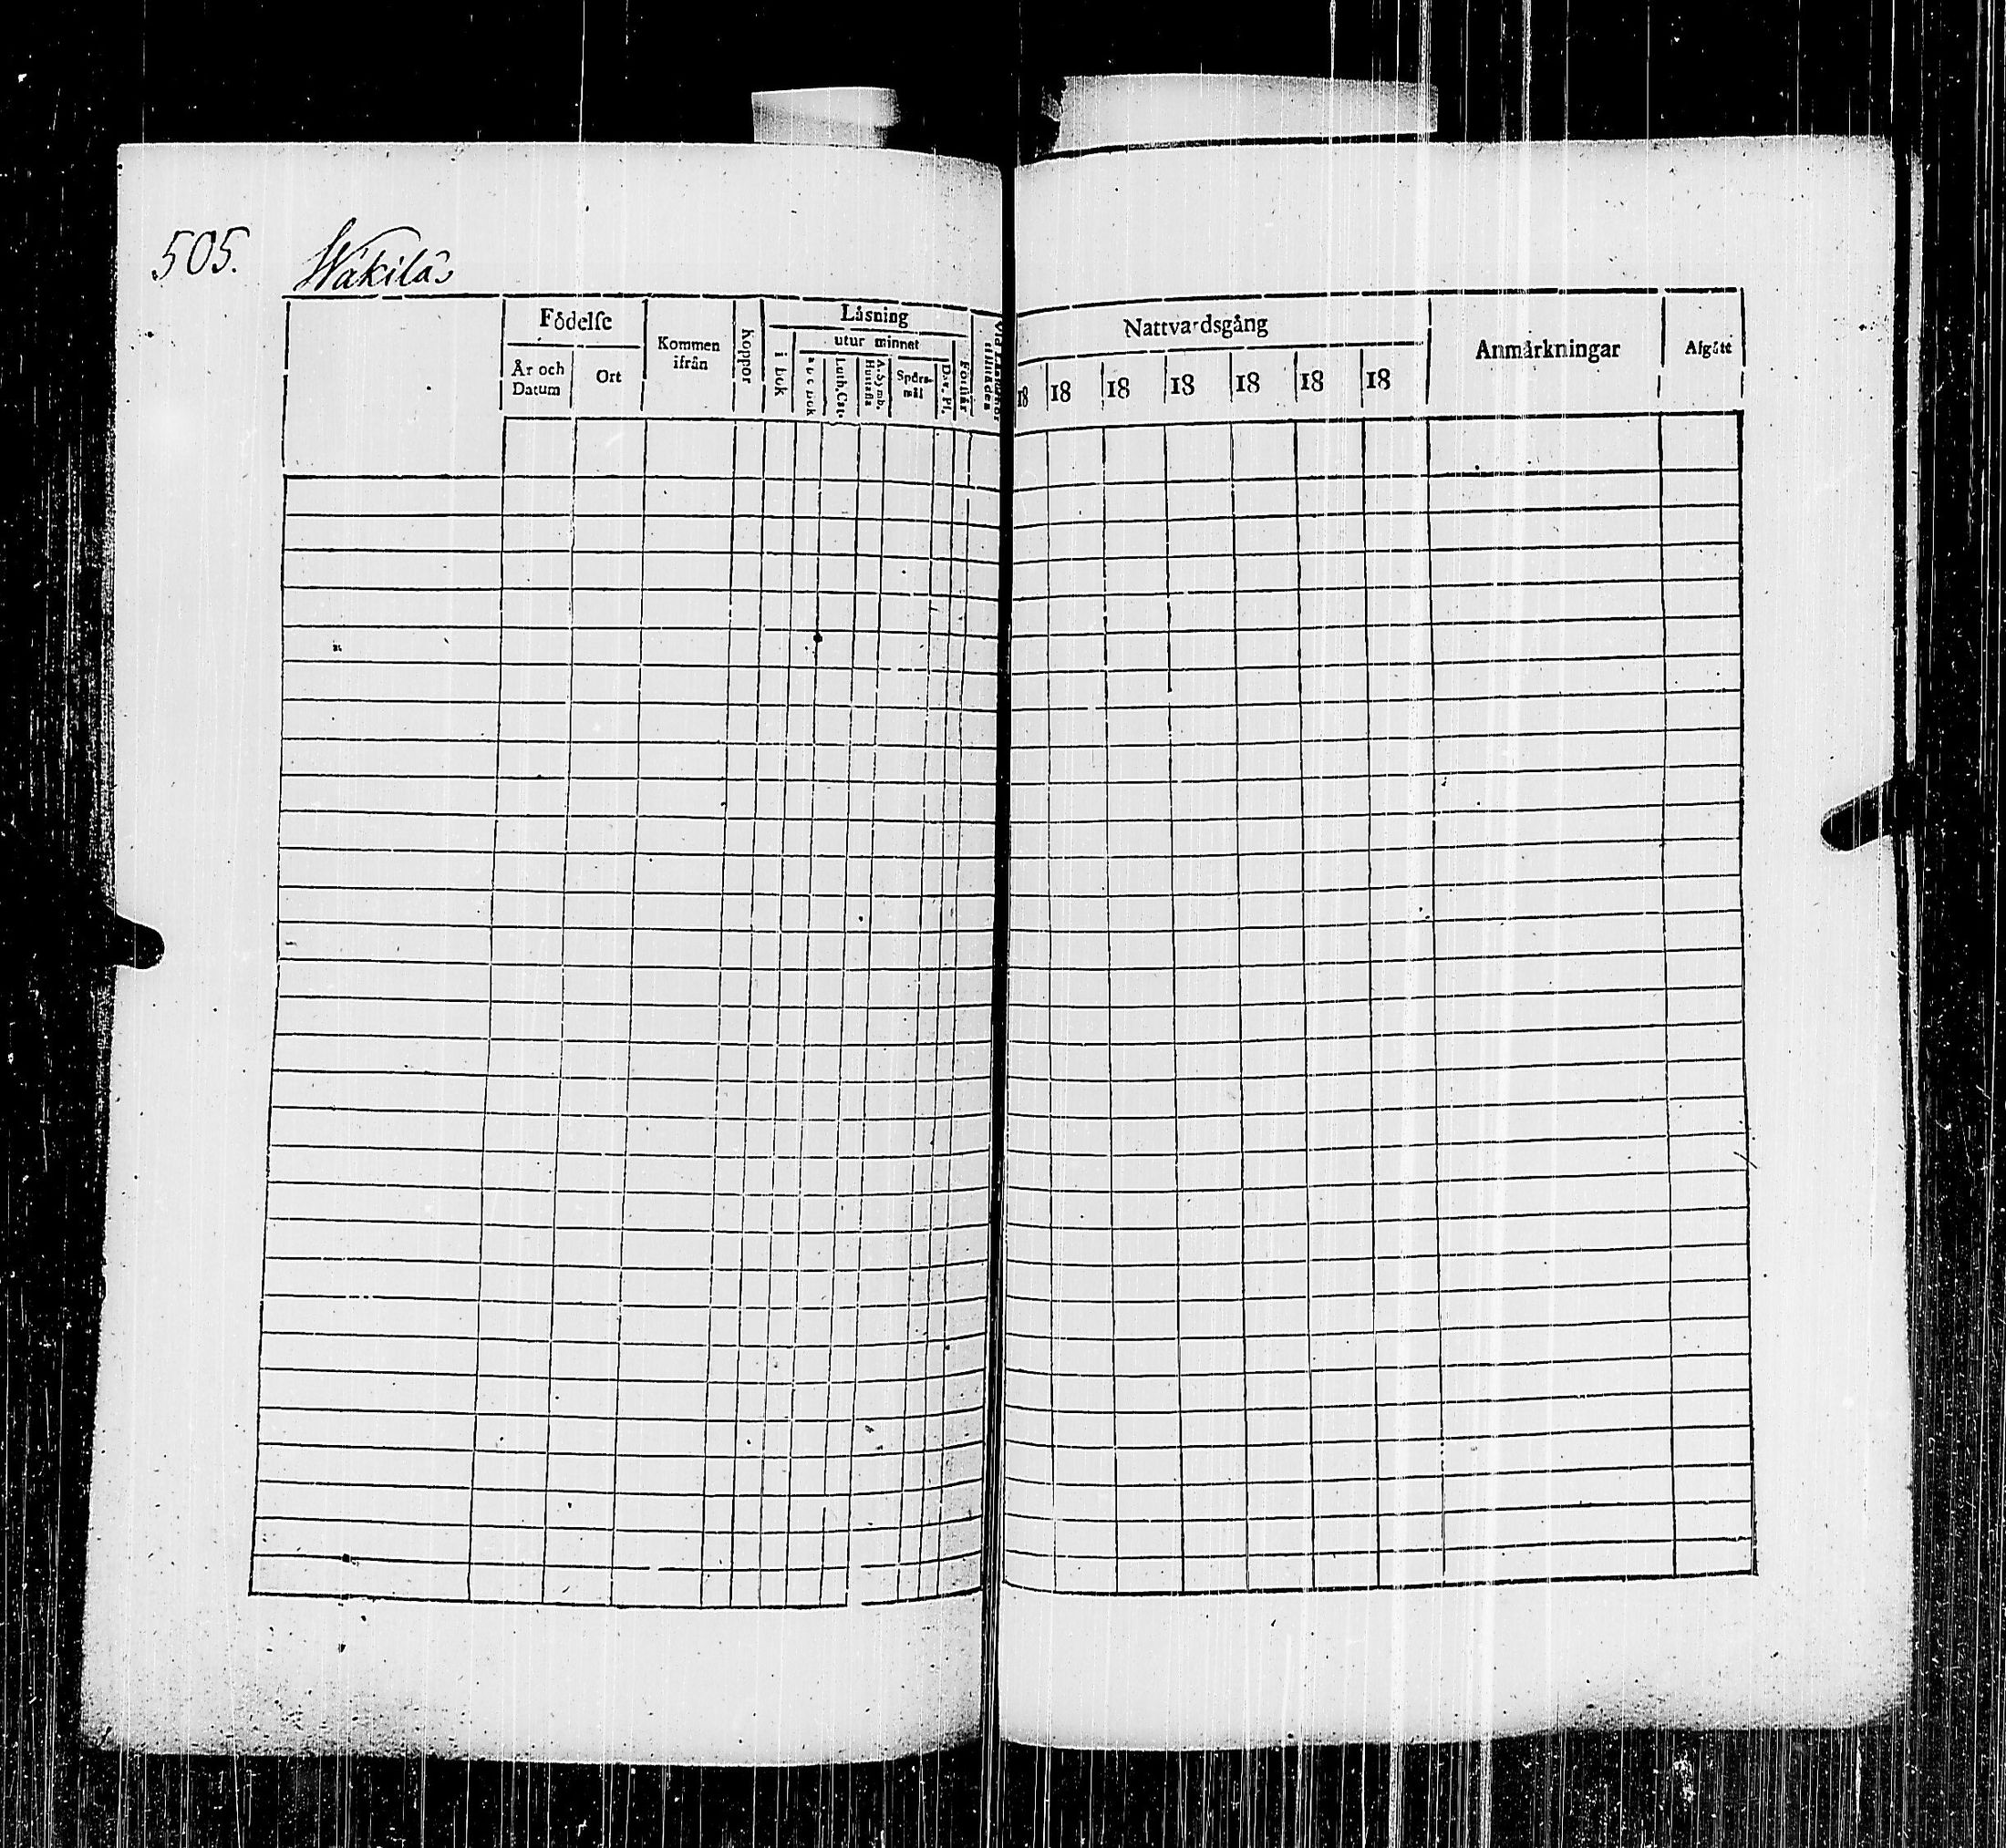 505. Wäkilä
Födelse
År och Datum
Ort
Kommen ifrån
Koppor
Läsning
i bok
utur minnet
a b c bok
Luth. Cat.
A. Symb. Hustafla
Spörsmål
Dav. Ps.
Förstår
Nattvardsgång
18 18 18 18 18 18 18
Anmärkningar
Afgått